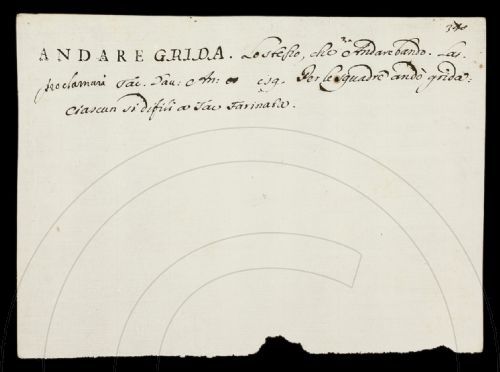 ANDARE GRIDA. Lo stesso, che Andare bando. Lat.
proclamari Tac. Dav: Per le squadre andò grida:
Ciascun si difili a Tac Farinata.